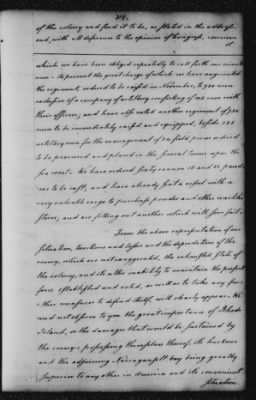 of the colony and find it to be, as stated in the address,
and, with all deference to the opinion of Congress, conceive
it
which we have been obliged repeatedly to call forth our minute
men. To prevent the great charge of which we have augmented
the regiment, ordered to be raised in November, to 720 men
exclusive of a company of artillery consisting of 100 men with
their officers; and have also voted another regiment of 720
men to be immediately raised and equipped, besides
artillery men for the management of 24 field pieces ordered
to be procured and placed in the several towns upon the
sea coast. We have ordered sixty cannon 18 and 24 pound-
ers to be cast, and have already sent a vessel with a
very valuable cargo to purchase powder and other warlike
stores, and are fitting out another which will soon sail.
From the above representation of our
situation, exertions and losses and the depredations of the
enemy, which are not exaggerated, the exhausted state of
the colony, and its utter inability to maintain the present
force established and voted, as well as to take any far-
ther measures to defend itself, will clearly appear. We
need not observe to you the great importance of Rhode
Island, or the damages that would be sustained by
the enemy possessing themselves thereof; its harbours
and the adjoining Narragansett bay being greatly
superior to any other in America and its convenient
situation